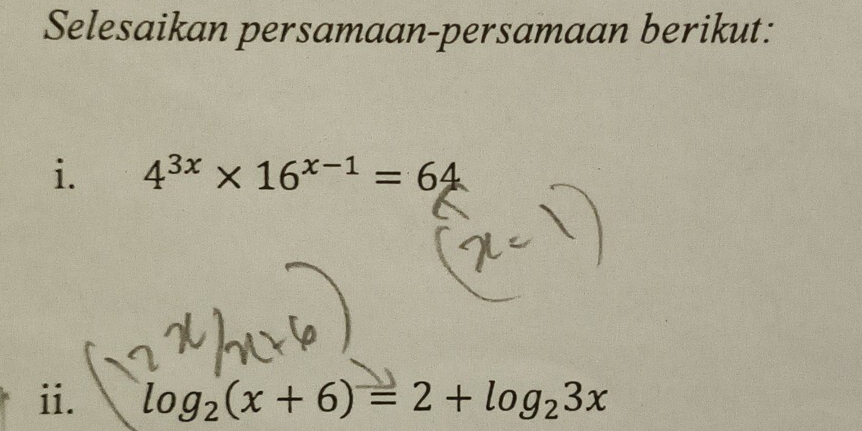 Selesaikan persamaan-persamaan berikut:
i. 4^{3x} × 16^{x−1} = 64
(x = 1)
(12x/x+6)
ii. log₂(x + 6) = 2 + log₂3x